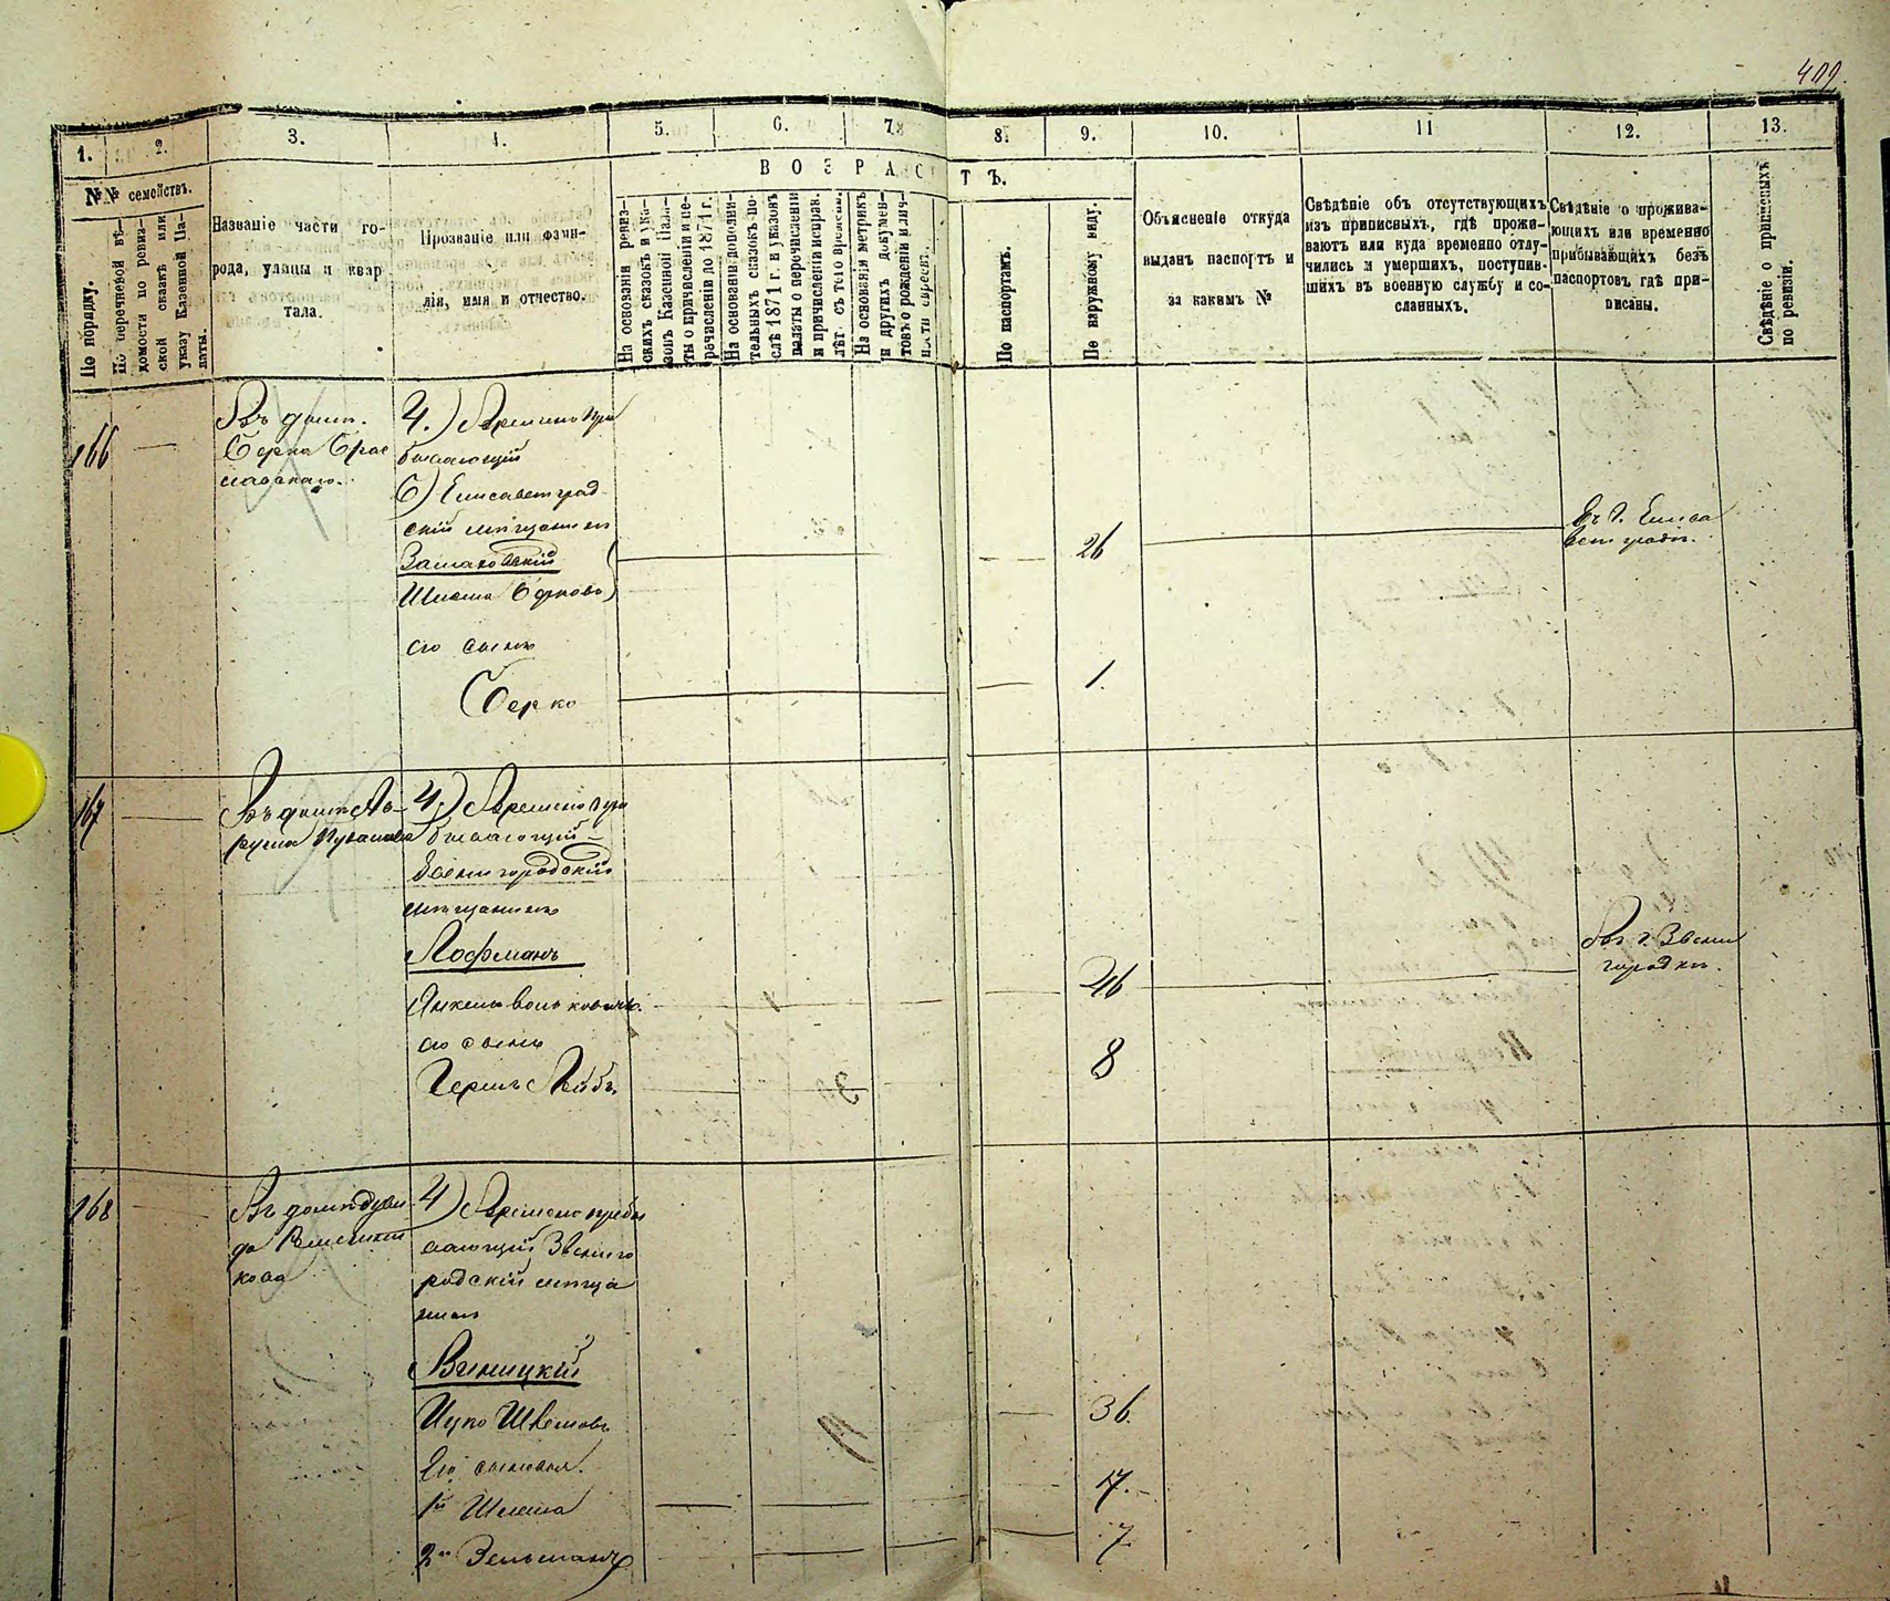 409.
1. 2. 3. 4. 5. 6. 7. 8. 9. 10. 11 12. 13.
ВОЗРАСТЪ.
№№ семействъ.
По порядку.
По перечневой вѣ-
домости по ревиз-
ской сказкѣ или
указу Казенной Па-
латы.
Названіе части го-
рода, улицы и квар
тала.
Прозваніе или фами-
лія, имя и отчество.
На основаніи ревиз-
скихъ сказокъ и ука-
зовъ Казенной Пала-
ты о причисленіи и пе-
речисленіи до 1871 г.
На основаніи дополни-
тельныхъ сказокъ по-
слѣ 1871 г. и указовъ
палаты о перечисленіи
и причисленіи исправ.
лѣт. съ того времени.
На основаніи метрикъ
и другихъ докумен-
товъ о рожденіи и лич-
ности евреевъ.
По паспортамъ.
По наружному виду.
Объясненіе откуда
выданъ паспортъ и
за какимъ №
Свѣдѣніе объ отсутствующихъ
изъ приписныхъ, гдѣ прожи-
ваютъ или куда временно отлу-
чились и умершихъ, поступив-
шихъ въ военную службу и со-
сланныхъ.
Свѣдѣніе о прожива-
ющихъ или временно
прибывающихъ безъ
паспортовъ гдѣ при-
писаны.
Свѣдѣніе о приписныхъ
по ревизіи.
166
Въ домѣ
Берка
Ч.) Временно пре
бывающій
Б) Елисаветград
скій мѣщанинъ
Шлема Берковъ
26
Въ г. Елиса
ветградѣ.
его сынъ
Берко
1.
167
Въ домѣ
Ч.) Временно пре
бывающій
Звенигородскій
мѣщанинъ
Лофманъ
Янкель Вольковичъ.
46
Въ г. Звени
городкѣ.
его сынъ
Гершъ Лейбъ.
8
168
Въ домѣ Дуви
да
кова
Ч) Временно пребы
вающій Звениго
родскій мѣща
нинъ
Виницкій
Ицко
36.
Его сыновья.
1й Шлема
17.
2й Зельманъ
7.